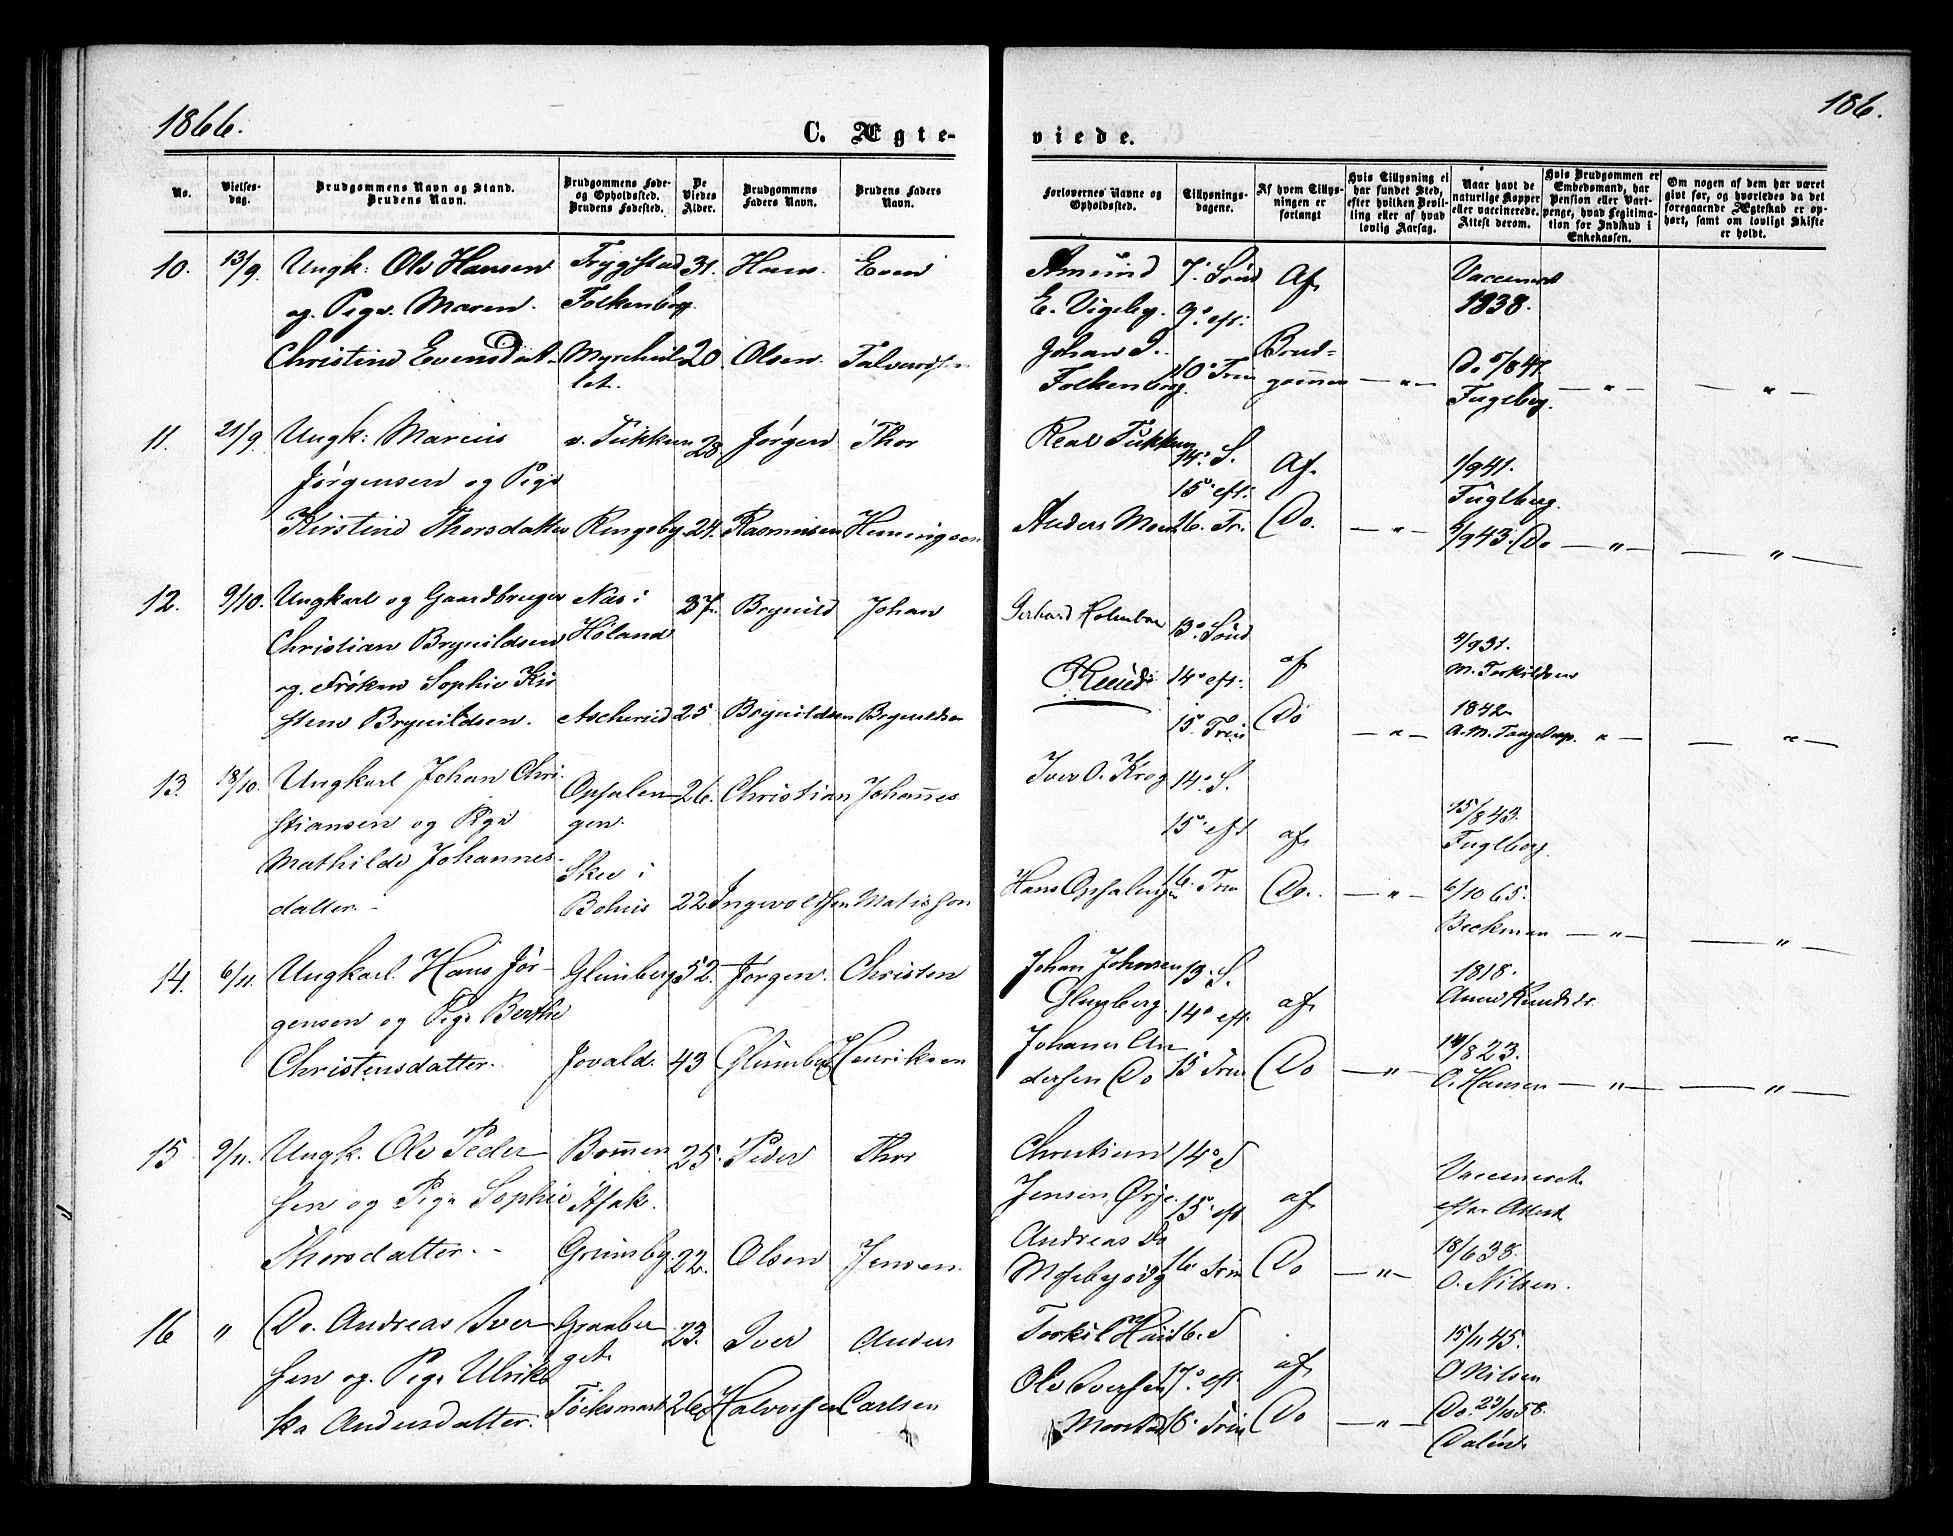 1866.
186.
C. Ægte-
viede.
No.
Vielses-
dag.
Brudgommens Navn og Stand.
Brudens Navn.
Brudgommens Føde-
og Opholdssted.
Brudens Fødested.
De
Viedes
Alder.
Brudgommens
Faders Navn.
Brudens Faders
Navn.
Forlovernes Navne og
Opholdssted.
Tillysnings-
dagene.
Af hvem Tillys-
ningen er
forlangt
Hvis Tillysning ei
har fundet Sted,
efter hvilken Bevil-
ling eller af hvad
lovlig Aarsag.
Naar havt de
naturlige Kopper
eller vaccinerede.
Attest derom.
Hvis Brudgommen er
Embedsmand, har
Pension eller Vart-
penge, hvad Legitima-
tion for Indskud i
Enkekassen.
Om nogen af dem har været
gift før, og hvorledes da det
foregaaende Ægteskab er op-
hørt, samt om lovligt Skifte
er holdt.
10. 13/9 Ungk: Ole Hansen Trygstad 31. Hans Even
og Pige Maren Folkenborg
Christine Evensdat. 20 Olsen
Amund 7. Sønd Af
E. Vigeby. 9. eft:
Johan 10. Trin Brud-
Folkenborg. gommen
Vaccineret
1838.
Do 5/8 47.
Fuglberg.
11. 21/9 Ungk: Marius v. Tukkun 28 Jørgen Thor
Jørgensen og Pige
Kirstine Thorsdatter Ringsby 24. Rasmusen Hemingsen
14. S. Af
15. eft:
Anders Moen 16. Tr. Do.
1/9 41.
Fuglberg.
9/9 43. Do
12. 9/10. Ungkarl og Gaardbruger Næs i 37. Brynild Johan
Christian Brynildsen Høland
og Frøken Sophie Kir
stine Brynildsen. 25 Brynildsen Brynildsen
Gerhard 13. Sønd
14. eft: af
15. Trin Do
9/9 31.
M. Torkildsen
1842
13. 18/10. Ungkarl Johan Chri- Opsalen 26. Christian Johannes
stiansen og Pige gen.
Mathilde Johannes- i
datter. Bohus 22 Ingvoldsen Matisson
Iver O. Krog 14. S.
15. eft af
Hans 16. Trin Do.
15/8 43.
Fuglberg.
6/10 65.
Beckman
14. 6/11. Ungkarl Hans Jør- Glimberg 52. Jørgen Christen
gensen og Pige Berthe
Christensdatter. Jovald. 43 Henriksen
Johan Johnsen 13. S.
14. eft. af
dersen Do 15 Trin Do
1818.
14/8 23.
O. Hansen
15 9/11. Ungk. Ole Peder Bommen 25. Peder Thor
sen og Pige Sophie
Thorsdatter. Grimsby 22. Olsen Jensen.
Christian 14. S
Jensen Ørje 15. eft af
Andreas Do
16 Trin Do
Vaccineret
efter Attest
18/6 38.
O. Nilsen.
16 " Do. Andreas Iver Graaber 23. Iver Anders
sen og Pige Ulrik get.
ka Andersdatter. Töcksmark 26 Halvorsen Carlsen
Torkil 16. S
Ole Iversen 17. eft af
18. Trin Do
15/11 45.
O Nilsen
Do. 23/10 58.